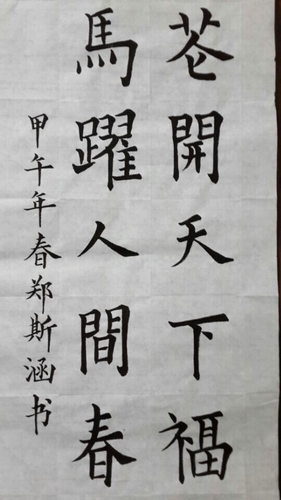 花開天下福
馬躍人間春
甲午年春郑斯涵书